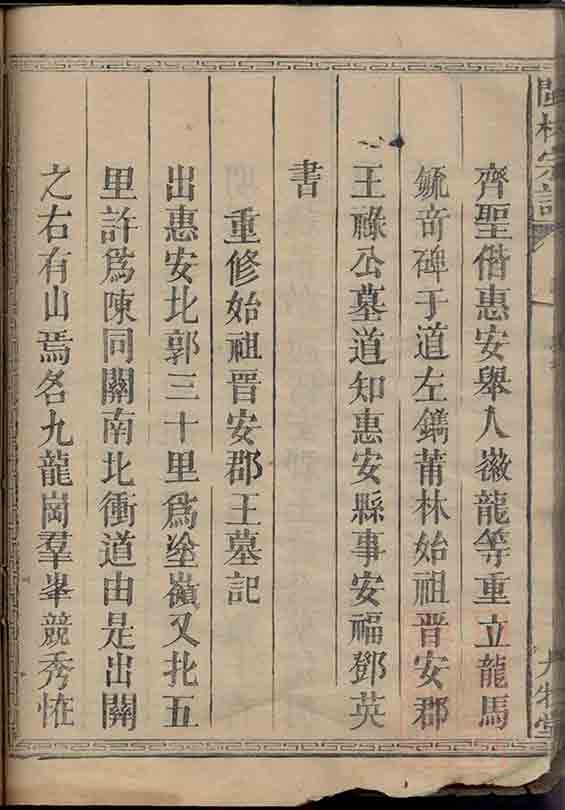 閩林宗譜
九牧堂
齊聖偕惠安舉人嶶龍等重立龍馬
毓奇碑于道左鐫莆林始祖晋安郡
王祿公墓道知惠安縣事安福鄧英
書
重修始祖晋安郡王墓記
出惠安北郭三十里爲塗嶺又北五
里許爲陳同關南北衝道由是出關
之右有山焉名九龍崗羣峯競秀恠